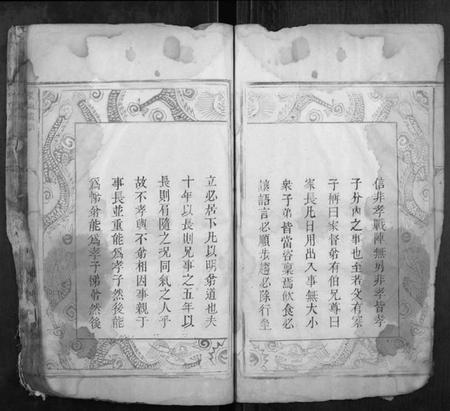 信非孝戰陣無勇非孝皆孝
子分內之事也至若父有冢
子稱曰家督弟有伯兄尊曰
家長凡日用出入事無大小
衆子弟皆當咨稟焉飲食必
讓語言必順步趨必隨行坐
立必居下凡以明弟道也夫
十年以長則兄事之五年以
長則肩隨之况同氣之人乎
故不孝與不弟相因事親于
事長並重能爲孝子然後能
爲悌弟能爲孝子悌弟然後